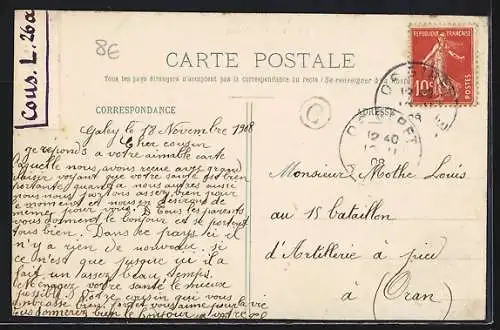 Cous. L. 26a
8E
CARTE POSTALE
Tous les pays étrangers n'acceptent pas la correspondance au recto (Se renseigner à
RÉPUBLIQUE FRANÇAISE
10c
POSTES
CORRESPONDANCE
ADRESSE
C
12 40
Galey le 18 Novembre 1908
Cher cousin
je réponds a votre aimable carte
Laquelle nous avons reçue avec grand
plaisir voyant que votre santé est bien
portante quand a nous autres aussi
nous nous portons assez bien pour
le moment et nous en désirons de
meme pour vous. Tous les parents
vous donnent le bonjour et se portent
tous bien. Dans le pays ici il
n'y a rien de nouveau si
ce n'est que jusque ici il a
fait un assez beau temps.
Menagez votre santé le mieux
possible. Votre cousin que vous
embrasse bien
donnerez bien le bonjour a votre
Monsieur Mothé Louis
au 15 bataillon
d'Artillerie à pied
à (Oran)